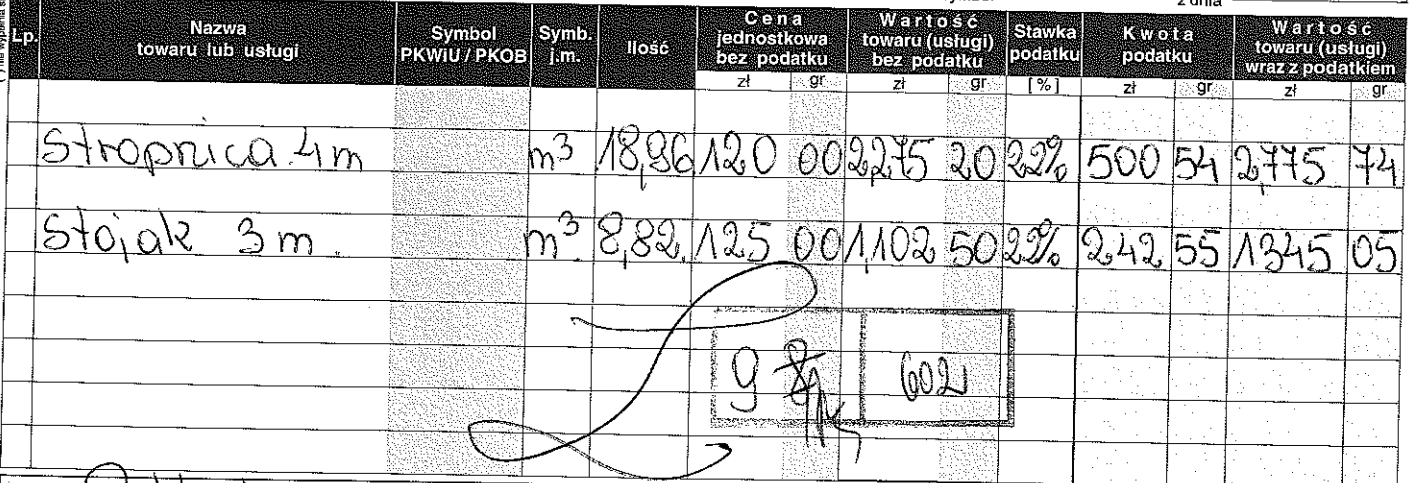 z dnia
Lp. Nazwa towaru lub usługi Symbol PKWiU / PKOB Symb. j.m. Ilość Cena jednostkowa bez podatku Wartość towaru (usługi) bez podatku Stawka podatku Kwota podatku Wartość towaru (usługi) wraz z podatkiem
zł gr zł gr [%] zł gr zł gr
Stropnica 4m m³ 18,96 120 00 2,275 20 22% 500 54 2,775 74
Stojak 3m m³ 8,82 125 00 1,102 50 22% 242 55 1345 05
9 602